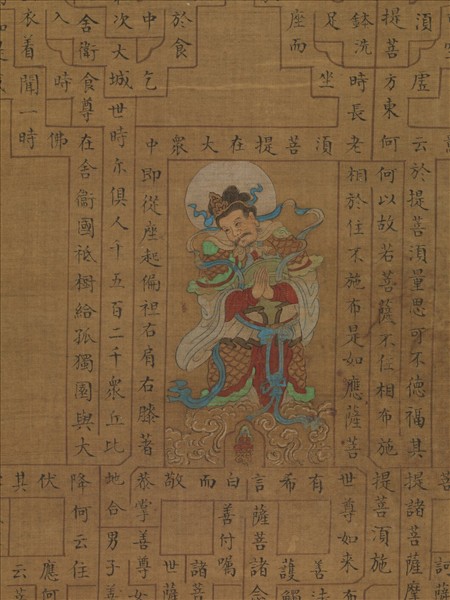 須虛云於提菩須量思可不德福其
提諸菩薩摩
提菩方東何何以故若菩薩不住相布施
提菩須施
鉢洗時長老相於住不施布是如應薩菩
世尊如來
足坐
座而
眾大在提菩須
於食
中乞
中即從座起偏袒右肩右膝著
恭掌善尊
次大城世時尔俱人千五百二千眾丘比
地合男子善
舍衛食尊在舍衛國祇樹給孤獨園與大
降何云住
入時佛
衣着聞一時
敬而白言希有
護
薩菩諸念
善付囑
諸菩
世薩
伏
應何
其